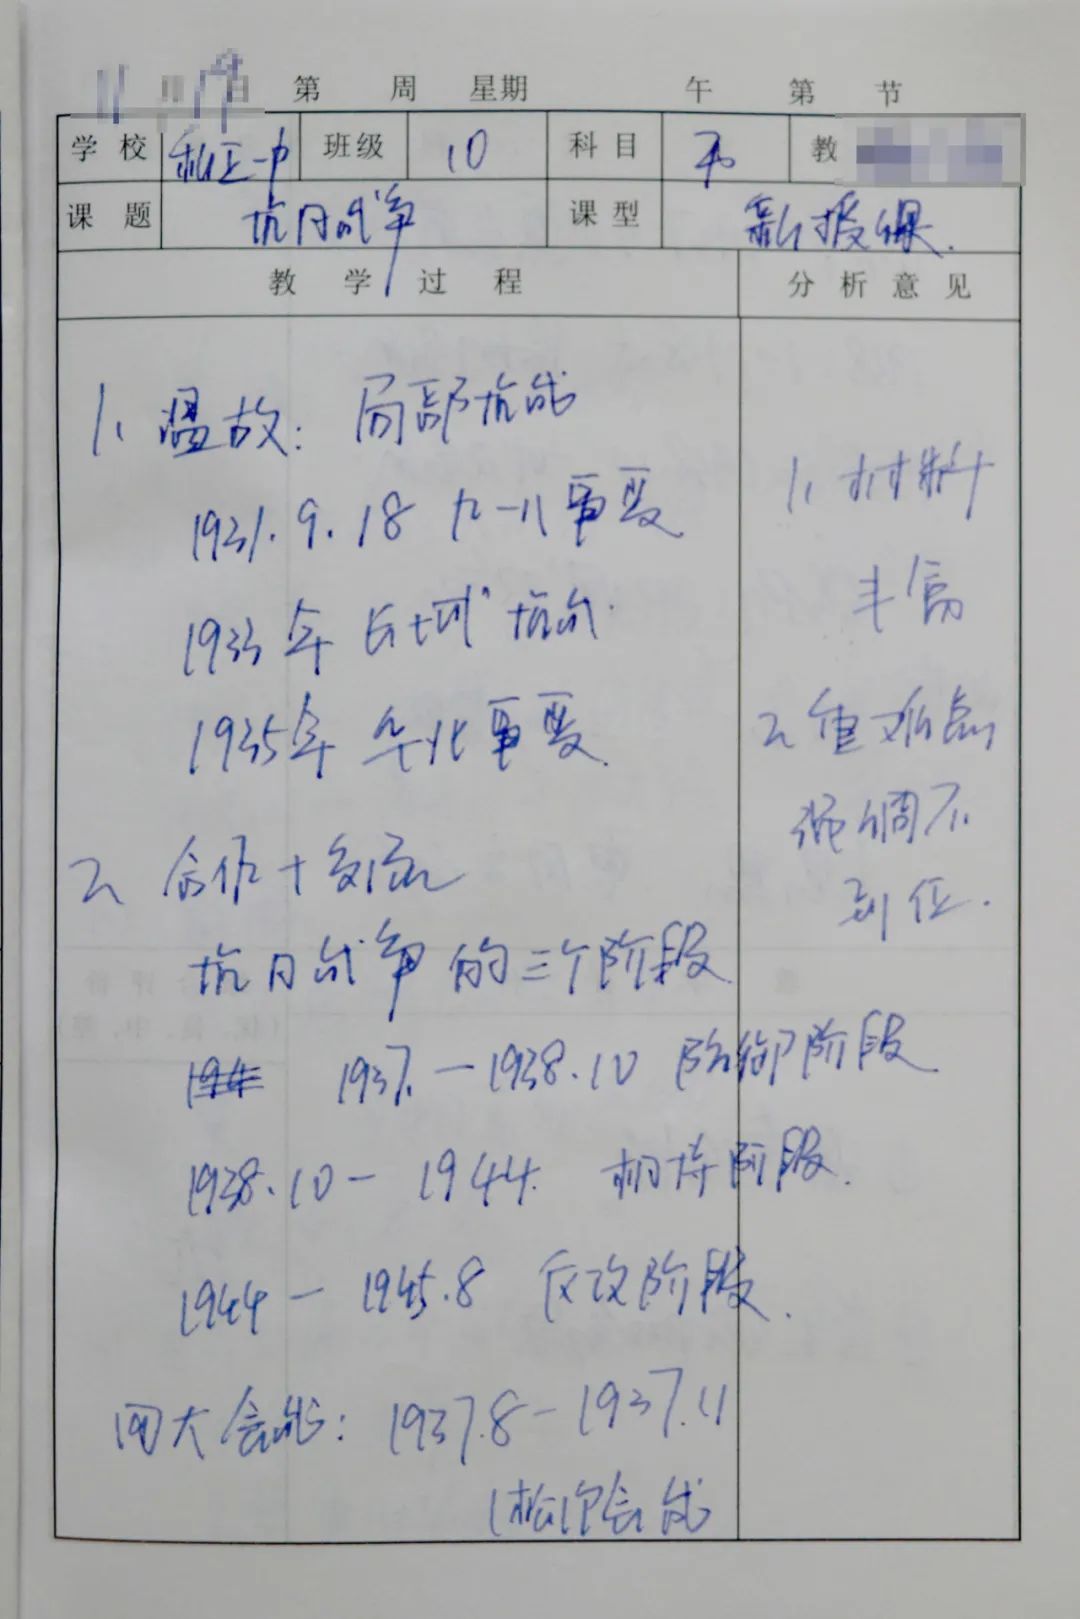 11月19日 第 周 星期 午 第 节
学校 班级 10 科目 历 教
课题 抗日战争 课型 新授课.
教学过程 分析意见
1、温故: 局部抗战
1931.9.18 九一八事变
1933年 长城抗战.
1935年 华北事变.
2、合作+交流
抗日战争的三个阶段
1937.—1938.10 防御阶段
1938.10— 1944. 相持阶段.
1944 — 1945.8 反攻阶段.
四大会战: 1937.8—1937.11
(松沪会战
1、材料
丰富
2、重难点
强调不
到位.